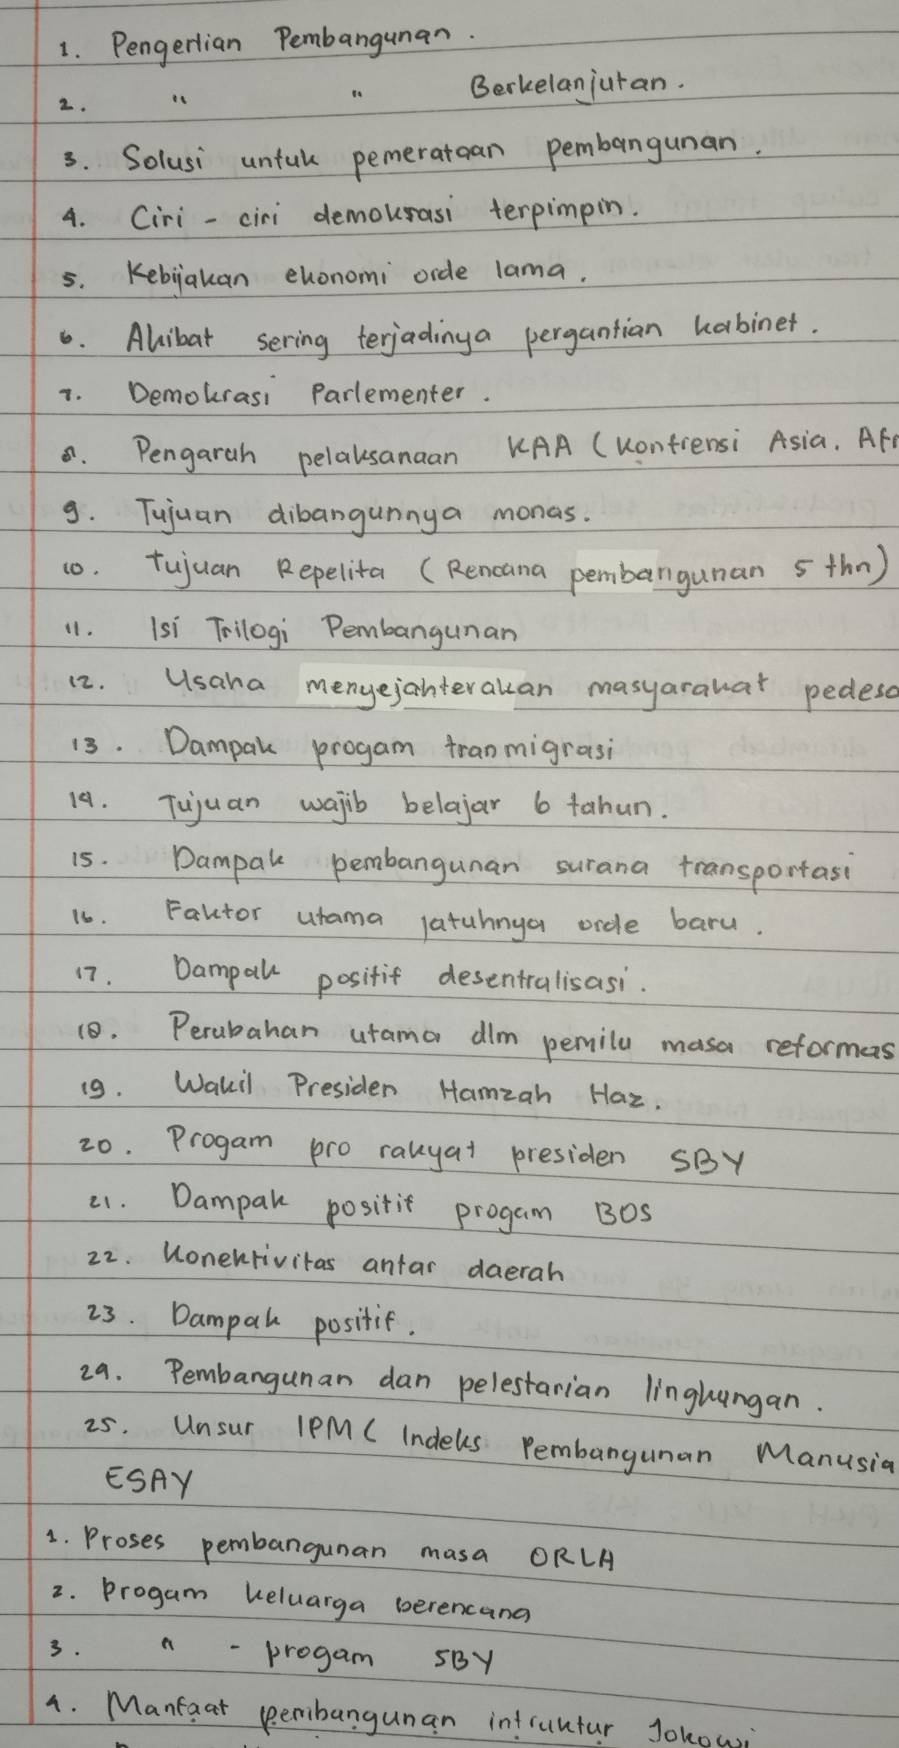 1. Pengertian Pembangunan.
2. " " Berkelanjutan.
3. Solusi untuk pemerataan pembangunan.
4. Ciri - ciri demokrasi terpimpin.
5. Kebijakan ekonomi orde lama.
6. Akibat sering terjadinya pergantian kabinet.
7. Demokrasi Parlementer.
8. Pengaruh pelaksanaan KAA (Konfrensi Asia. Afr
9. Tujuan dibangunnya monas.
10. Tujuan Repelita (Rencana pembangunan 5 thn)
11. Isi Trilogi Pembangunan
12. Usaha menyejahterakan masyarakat pedesa
13. Dampak progam tranmigrasi
14. Tujuan wajib belajar 6 tahun.
15. Dampak pembangunan surana transportasi
16. Faktor utama jatuhnya orde baru.
17. Dampak positif desentralisasi.
18. Perubahan utama dlm pemilu masa reformas
19. Wakil Presiden Hamzah Haz.
20. Progam pro rakyat presiden SBY
21. Dampak positif progam BOS
22. Konektivitas antar daerah
23. Dampak positif.
24. Pembangunan dan pelestarian lingkungan.
25. Unsur IPM ( Indeks Pembangunan Manusia
ESAY
1. Proses pembangunan masa ORLA
2. Progam keluarga berencana
3. " - progam SBY
4. Manfaat pembangunan intruktur Jokowi